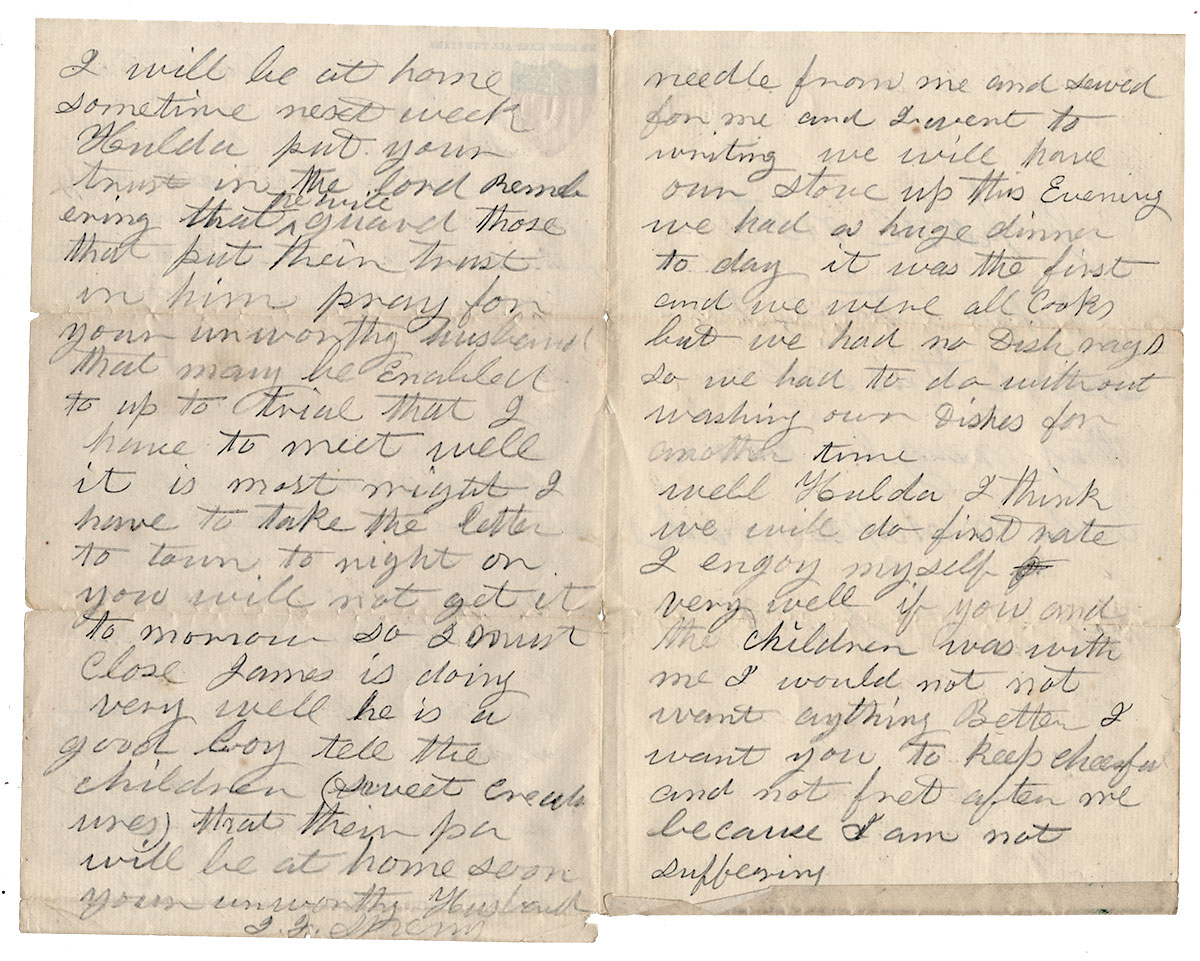 I will be at home
sometime next week
Hulda put your
trust in the lord Remb
ering that he will guard those
that put their trust
in him pray for
your unworthy husband
that may be Enabled
to up to trial that I
have to meet well
it is most night I
have to take the letter
to town to night or
you will not get it
to morrow so I must
Close James is doing
very well he is a
good boy tell the
children (sweet Creat
ures) that their pa
will be at home soon
your unworthy Husband
needle from me and sewed
for me and I went to
writing we will have
our stove up this Evening
we had a huge dinner
to day it was the first
and we were all Cooks
but we had no Dish rags
so we had to do without
washing our Dishes for
another time
well Hulda I think
we will do first rate
I enjoy myself
very well if you and
the children was with
me I would not not
want aything Better I
want you to keep cheerful
and not fret after me
because I am not
suffering